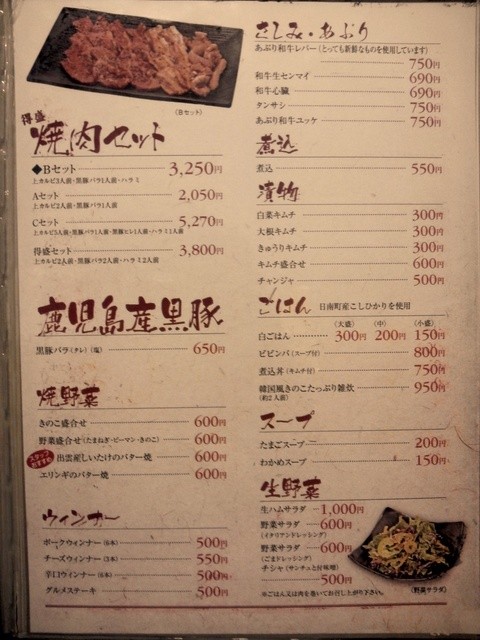 (Bセット)
得盛
焼肉セット
◆Bセット 3,250円
上カルビ3人前・黒豚バラ1人前・ハラミ
Aセット 2,050円
上カルビ2人前・黒豚バラ1人前
Cセット 5,270円
上カルビ5人前・黒豚バラ1人前・黒豚ヒレ1人前・ハラミ1人前
得盛セット 3,800円
上カルビ2人前・黒豚バラ2人前・ハラミ2人前
鹿児島産黒豚
黒豚バラ(タレ)(塩) 650円
焼野菜
きのこ盛合せ 600円
野菜盛合せ(たまねぎ・ピーマン・きのこ) 600円
スタッフおすすめ 出雲産しいたけのバター焼 600円
エリンギのバター焼 600円
ウィンナー
ポークウィンナー(6本) 500円
チーズウィンナー(5本) 550円
辛口ウィンナー(6本) 500円
グルメステーキ 500円
さしみ・あぶり
あぶり和牛レバー(とっても新鮮なものを使用しています)
750円
和牛生センマイ 690円
和牛心臓 690円
タンサシ 750円
あぶり和牛ユッケ 750円
煮込
煮込 550円
漬物
白菜キムチ 300円
大根キムチ 300円
きゅうりキムチ 300円
キムチ盛合せ 600円
チャンジャ 500円
ごはん 日南町産こしひかりを使用
(大盛) (中) (小盛)
白ごはん 300円 200円 150円
ビビンバ(スープ付) 800円
煮込丼(キムチ付) 750円
韓国風きのこたっぷり雑炊 950円
(約2人前)
スープ
たまごスープ 200円
わかめスープ 150円
生野菜
生ハムサラダ 1,000円
野菜サラダ 600円
(イタリアンドレッシング)
野菜サラダ 600円
(ごまドレッシング)
チシャ(サンチュと付味噌)
500円
※ごはん又は肉を巻いてお召し上がり下さい。
(野菜サラダ)